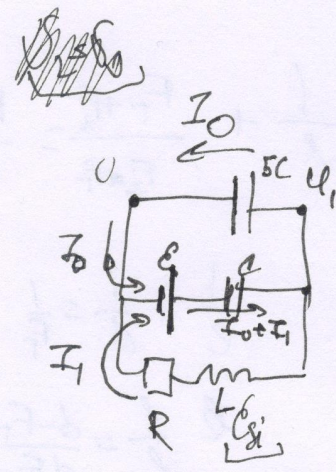 I₀
0 5C φ₁
I₀ ℰ C
I₀+I₁
I₁
R L